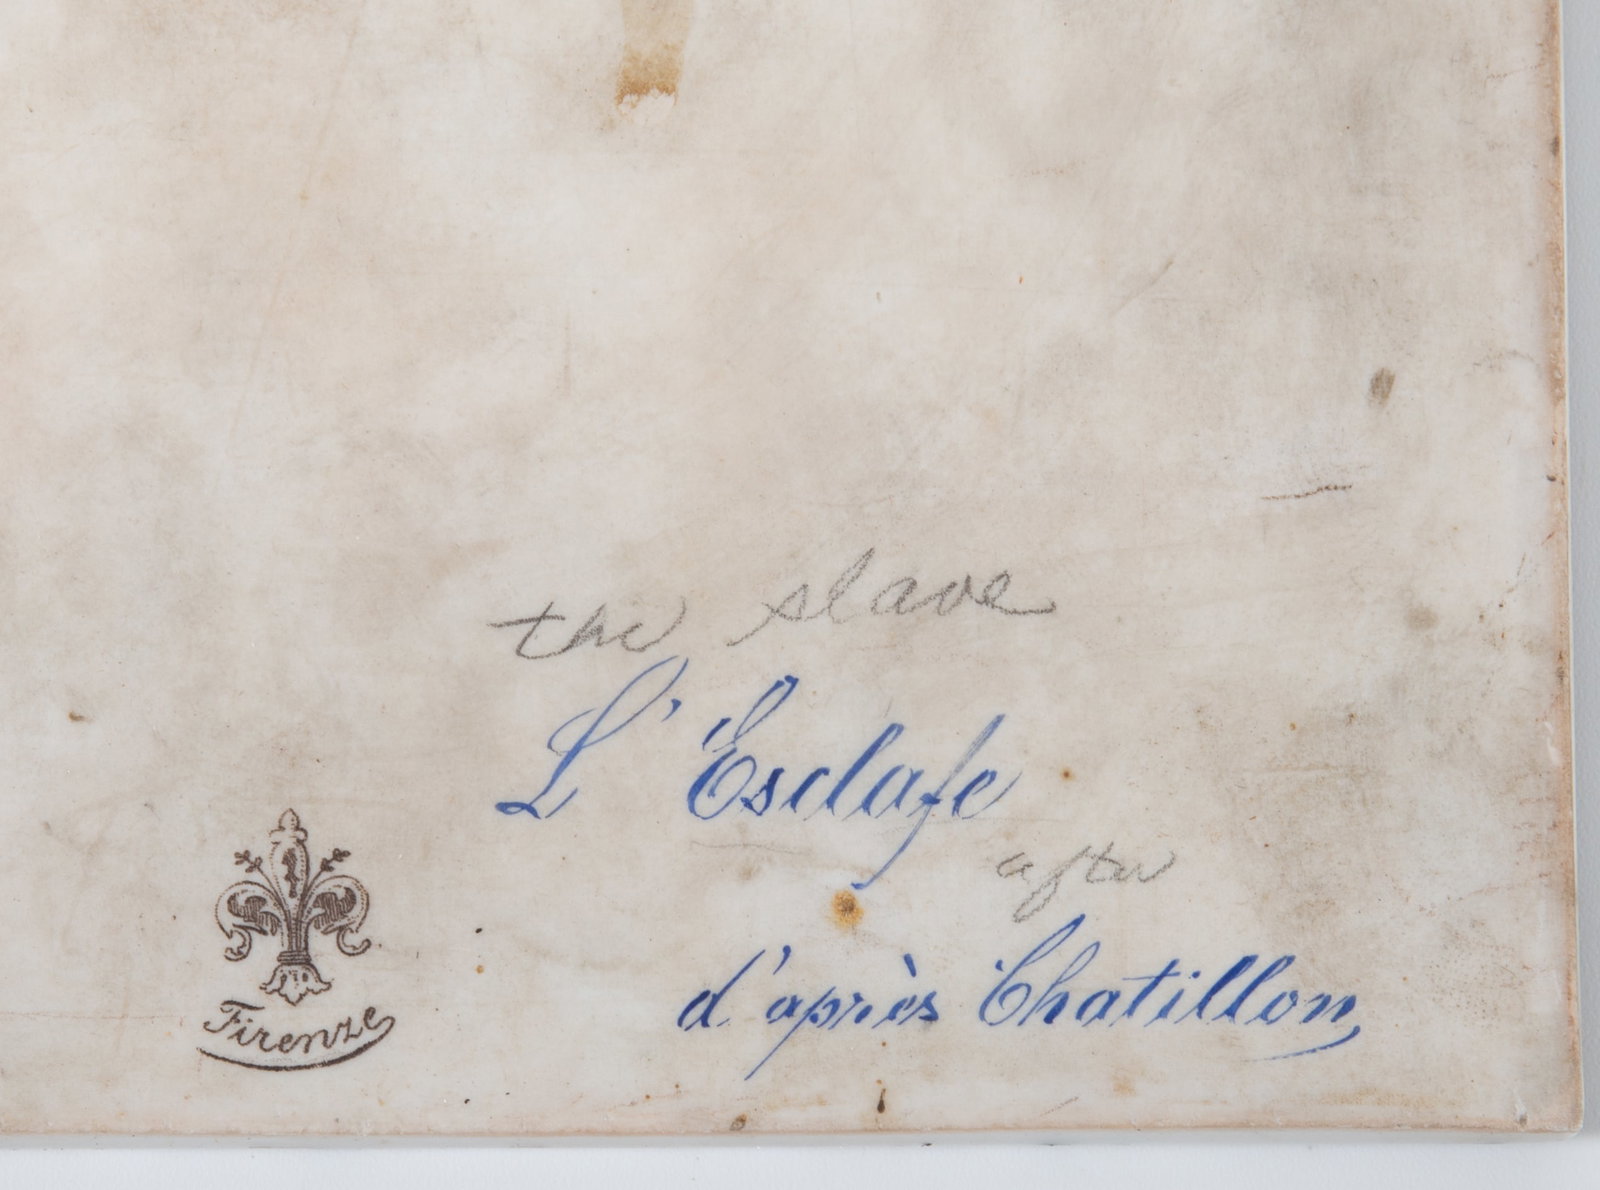 the slave
L'Esclafe
after
d'après Chatillon
Firenze